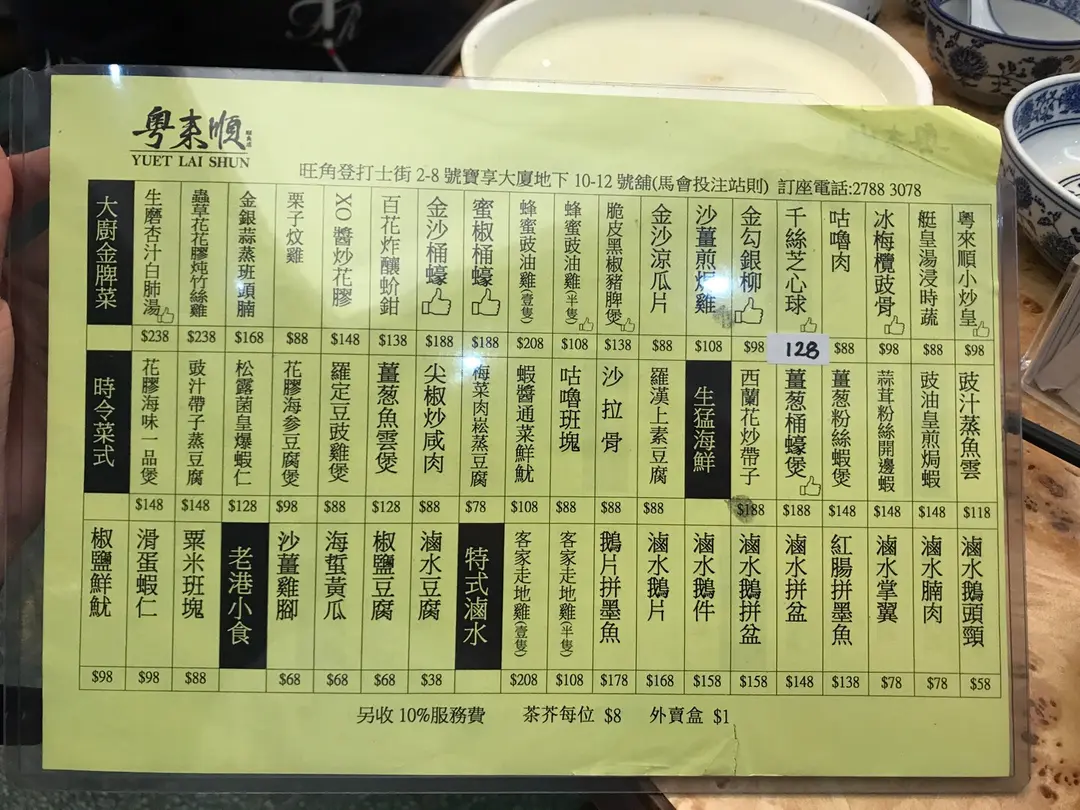 粵來順
YUET LAI SHUN
旺角登打士街 2-8 號寶享大廈地下 10-12 號舖(馬會投注站則) 訂座電話:2788 3078
大廚金牌菜
生磨杏汁白肺湯
$238
蟲草花花膠炖竹絲雞
$238
金銀蒜蒸班頭腩
$168
栗子炆雞
$88
XO 醬炒花膠
$148
百花炸釀蚧鉗
$138
金沙桶蠔
$188
蜜椒桶蠔
$188
蜂蜜豉油雞(壹隻)
$208
蜂蜜豉油雞(半隻)
$108
脆皮黑椒豬脾煲
$138
金沙涼瓜片
$88
沙薑煎焗雞
$108
金勾銀柳
$98
千絲芝心球
128
咕嚕肉
$88
冰梅欖豉骨
$98
艇皇湯浸時蔬
$88
粵來順小炒皇
$98
時令菜式
花膠海味一品煲
$148
豉汁帶子蒸豆腐
$148
松露菌皇爆蝦仁
$128
花膠海参豆腐煲
$98
羅定豆豉雞煲
$88
薑葱魚雲煲
$128
尖椒炒咸肉
$88
梅菜肉崧蒸豆腐
$78
蝦醬通菜鮮魷
$108
咕嚕班塊
$88
沙拉骨
$88
羅漢上素豆腐
$88
生猛海鮮
西蘭花炒帶子
$188
薑葱桶蠔煲
$188
薑葱粉絲蝦煲
$148
蒜茸粉絲開邊蝦
$148
豉油皇煎焗蝦
$148
豉汁蒸魚雲
$118
椒鹽鮮魷
$98
滑蛋蝦仁
$98
粟米班塊
$88
老港小食
沙薑雞腳
$68
海蜇黃瓜
$68
椒鹽豆腐
$68
滷水豆腐
$38
特式滷水
客家走地雞(壹隻)
$208
客家走地雞(半隻)
$108
鵝片拼墨魚
$178
滷水鵝片
$168
滷水鵝件
$158
滷水鵝拼盆
$158
滷水拼盆
$148
紅腸拼墨魚
$138
滷水掌翼
$78
滷水腩肉
$78
滷水鵝頭頸
$58
另收 10%服務費 茶芥每位 $8 外賣盒 $1